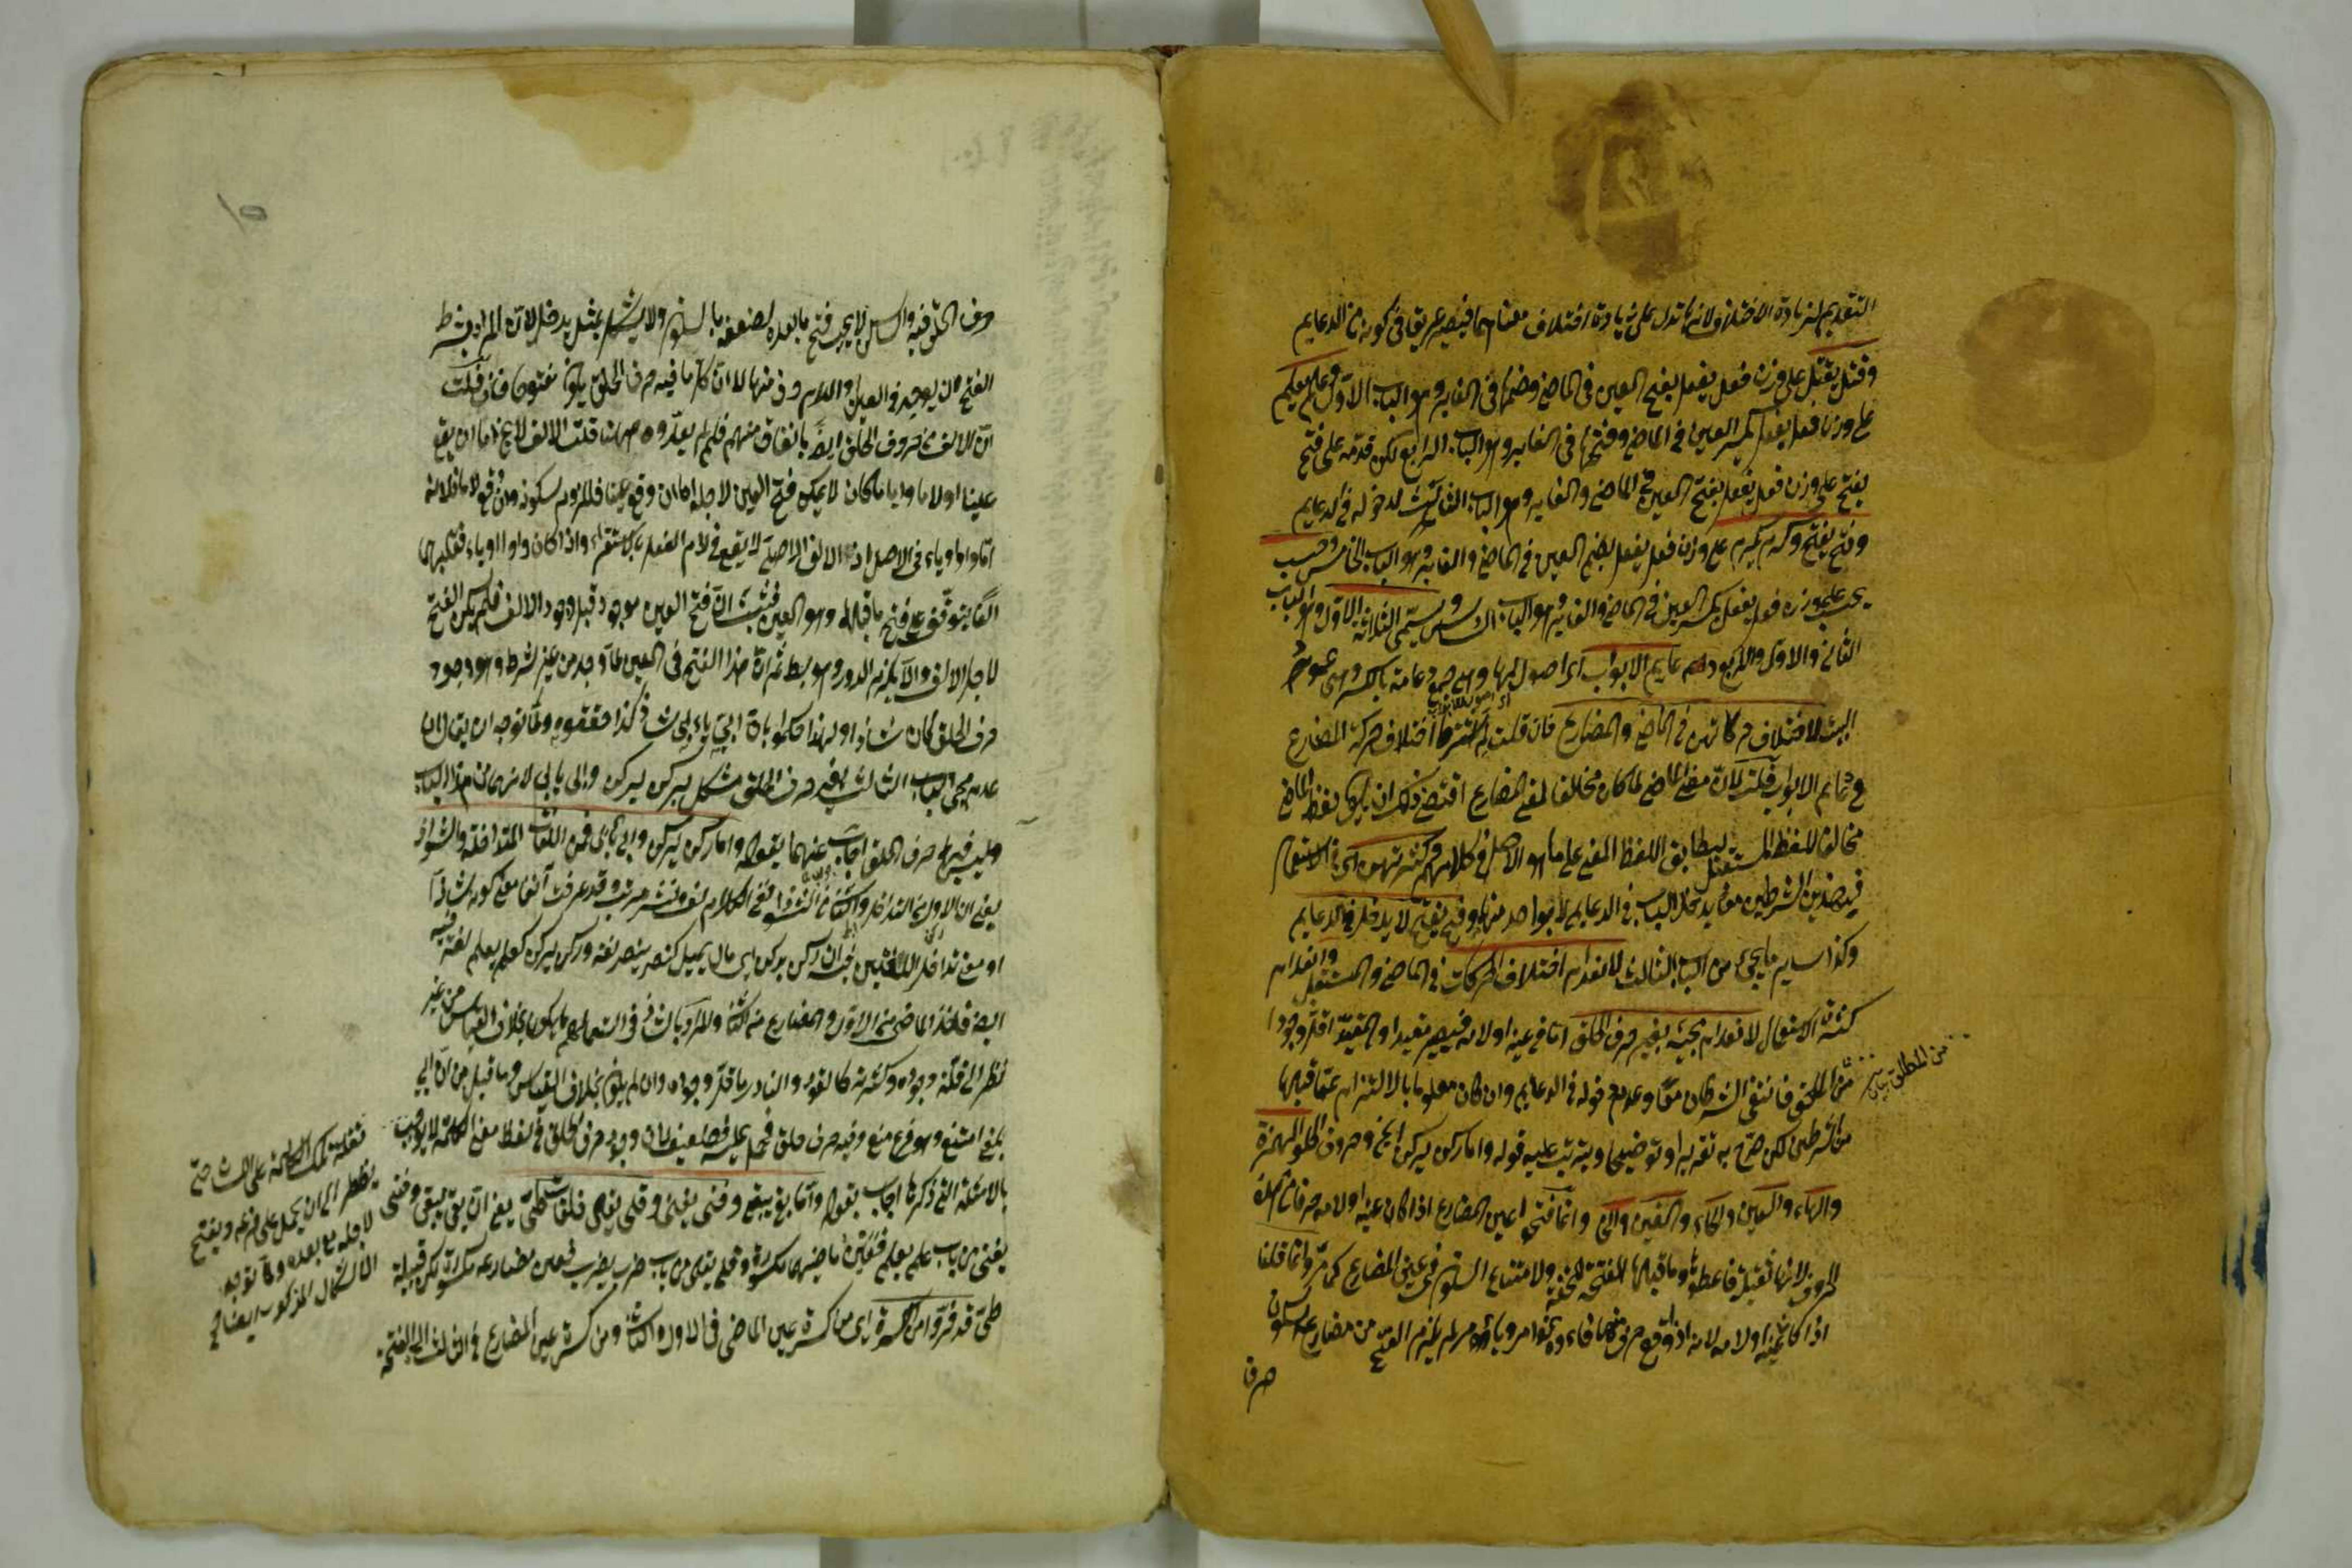 التقديم لزيادة الاختلاف لانها تدل على زيادة اختلاف معناهما فيصير عريقا في كونه من الدعايم
وقتل يقتل على وزن فعل يفعل بفتح العين في الماضي وضمها في الغابر وهو الباب الاول وعلم يعلم
على وزن فعل يفعل بكسر العين في الماضي وفتحها في الغابر وهو الباب الرابع لكن قدمه على فتح
يفتح على وزن فعل يفعل بفتح العين في الماضي والغابر وهو الباب الثالث لدخوله في الدعايم
وفتح يفتح وكرم يكرم على وزن فعل يفعل بضم العين في الماضي والغابر وهو الباب الخامس وحسب
يحسب على وزن فعل يفعل بكسر العين في الماضي والغابر وهو الباب السادس ويسمى الثلاثة الاول وهو الباب
الثاني والاول والرابع دعايم الابواب اي اصولها وهي جمع دعامة بالكسر وهي عمود
البيت لاختلاف حركاتهن في الماضي والمضارع فان قلت لم اشترط اختلاف حركة المضارع
في دعايم الابواب قلت لان معنى الماضي لما كان مخالفا لمعنى المضارع اقتضى ذلك ان يكون لفظ الماضي
مخالفا للفظ المستقبل ليطابق اللفظ المعنى على ما هو الاصل في كلامهم وكثرتهن اي في الاستعمال
فبهذين الشرطين معا يدخل الباب في الدعايم لا بواحد منهما وفتح يفتح لا يدخل في الدعايم
وكذا ساير ما يجيء من الباب الثالث لانعدام اختلاف الحركات في الماضي والمستقبل وانعدام
كثرة الاستعمال لانعدام مجيئه بغير حرف الحلق اما في عينه او لامه فيصير مقيدا والمقيد اقل وجودا
من المطلق فانتفى الشرطان معا وعدم دخوله في الدعايم وان كان معلوما بالالتزام عما قبلها
من الشرطين لكن صرح به تقريرا وتوضيحا ويترتب عليه قوله واما ركن يركن الخ وحروف الحلق الهمزة
والهاء والعين والحاء والغين والخاء وانما فتحوا عين المضارع اذا كان عينه او لامه حرفا من هذه
الحروف لانها ثقيلة فاعطوها وما قبلها الفتحة للخفة ولامتناع السكون في عين المضارع كما مر وانما قلنا
اذا كان عينه او لامه لانه اذا وقع حرف منها فاء نحو امر يامر لم يلزم الفتح من مضارعه لسكون
حرف
من المطلق
حرف الحلق فيه والساكن لا يجب فتح ما بعده لضعفه بالسكون ولا يشكل بمثل يدخل لان المراد بشرط
الفتح ان يوجد في العين او اللام حرف منها لا ان كل ما فيه حرف الحلق يكون مفتوحا فان قلت
ان الالف من حروف الحلق ايضا باتفاق منهم فلم لم يعدوه ههنا قلت الالف لا يخ اما ان يقع
عينا او لاما وايا ما كان لا يمكن فتح العين لاجله اما ان وقع عينا فللزوم سكونه وان وقع لاما فلانه
اما واو او ياء في الاصل اذ الالف الاصلي لا يقع في لام الفعل بالاستقراء واذا كان واوا او ياء فقلبهما
الفا يتوقف على فتح ما قبلها وهو العين فثبت ان فتح العين موجود قبل وجود الالف فلم يكن الفتح
لاجل الالف والا يلزم الدور وهو بط ثم ان هذا الفتح في العين لما وجد من غير شرط وهو وجود
حرف الحلق كان شاذا ولهذا حكموا بان ابى يابى شاذ كذا حققوه ولما توجه ان يقال ان
عدم مجيء الباب الثالث بغير حرف الحلق مشكل بركن يركن وابى يابى لانهما من هذا الباب
وليس فيهما حرف الحلق اجاب عنهما بقوله واما ركن يركن وابى يابى فمن اللغات المتداخلة والشواذ
يعني ان الاول من التداخل والثاني من الشواذ ففي الكلام لف ونشر مرتب وقد عرفت آنفا معنى كونه شاذا
او معنى تداخل اللغتين فيه ان ركن يركن اي مال يميل كنصر ينصر لغة وركن يركن كعلم يعلم لغة فيه
ايضا فاخذ الماضي من الاول والمضارع من الثاني والمراد بالشاذ في استعمالهم ما يكون بخلاف القياس من غير
نظر الى قلة وجوده وكثرته كالقود والنادر ما قل وجوده وان لم يكن بخلاف القياس وما قيل من ان ابى
بمعنى امتنع وهو فرع منع وفيه حرف حلق فحمل عليه فضعيف لان وجود حرف الحلق في لفظ معنى الكلمة لا يوجب
بالامثلة التي ذكرها اجاب بقوله واما بقى يبقى وفنى يفنى وقلى يقلى فلغات طي يعني ان بقى يبقى وفنى
يفنى من باب علم يعلم فعين ماضيهما مكسورة وقلى يقلى من باب ضرب يضرب فعين مضارعه مكسورة لكن قبيلة
طي قد فروا من الكسرة اي من كسرة عين الماضي في الاول والثاني ومن كسرة عين المضارع في الثالث الى الفتحة
فتح تلك الكلمة على
نظرا الى ان يحمل على فرعه ويفتح
لاجله ما بعده ولما توجه
الاشكال المذكور ايضا